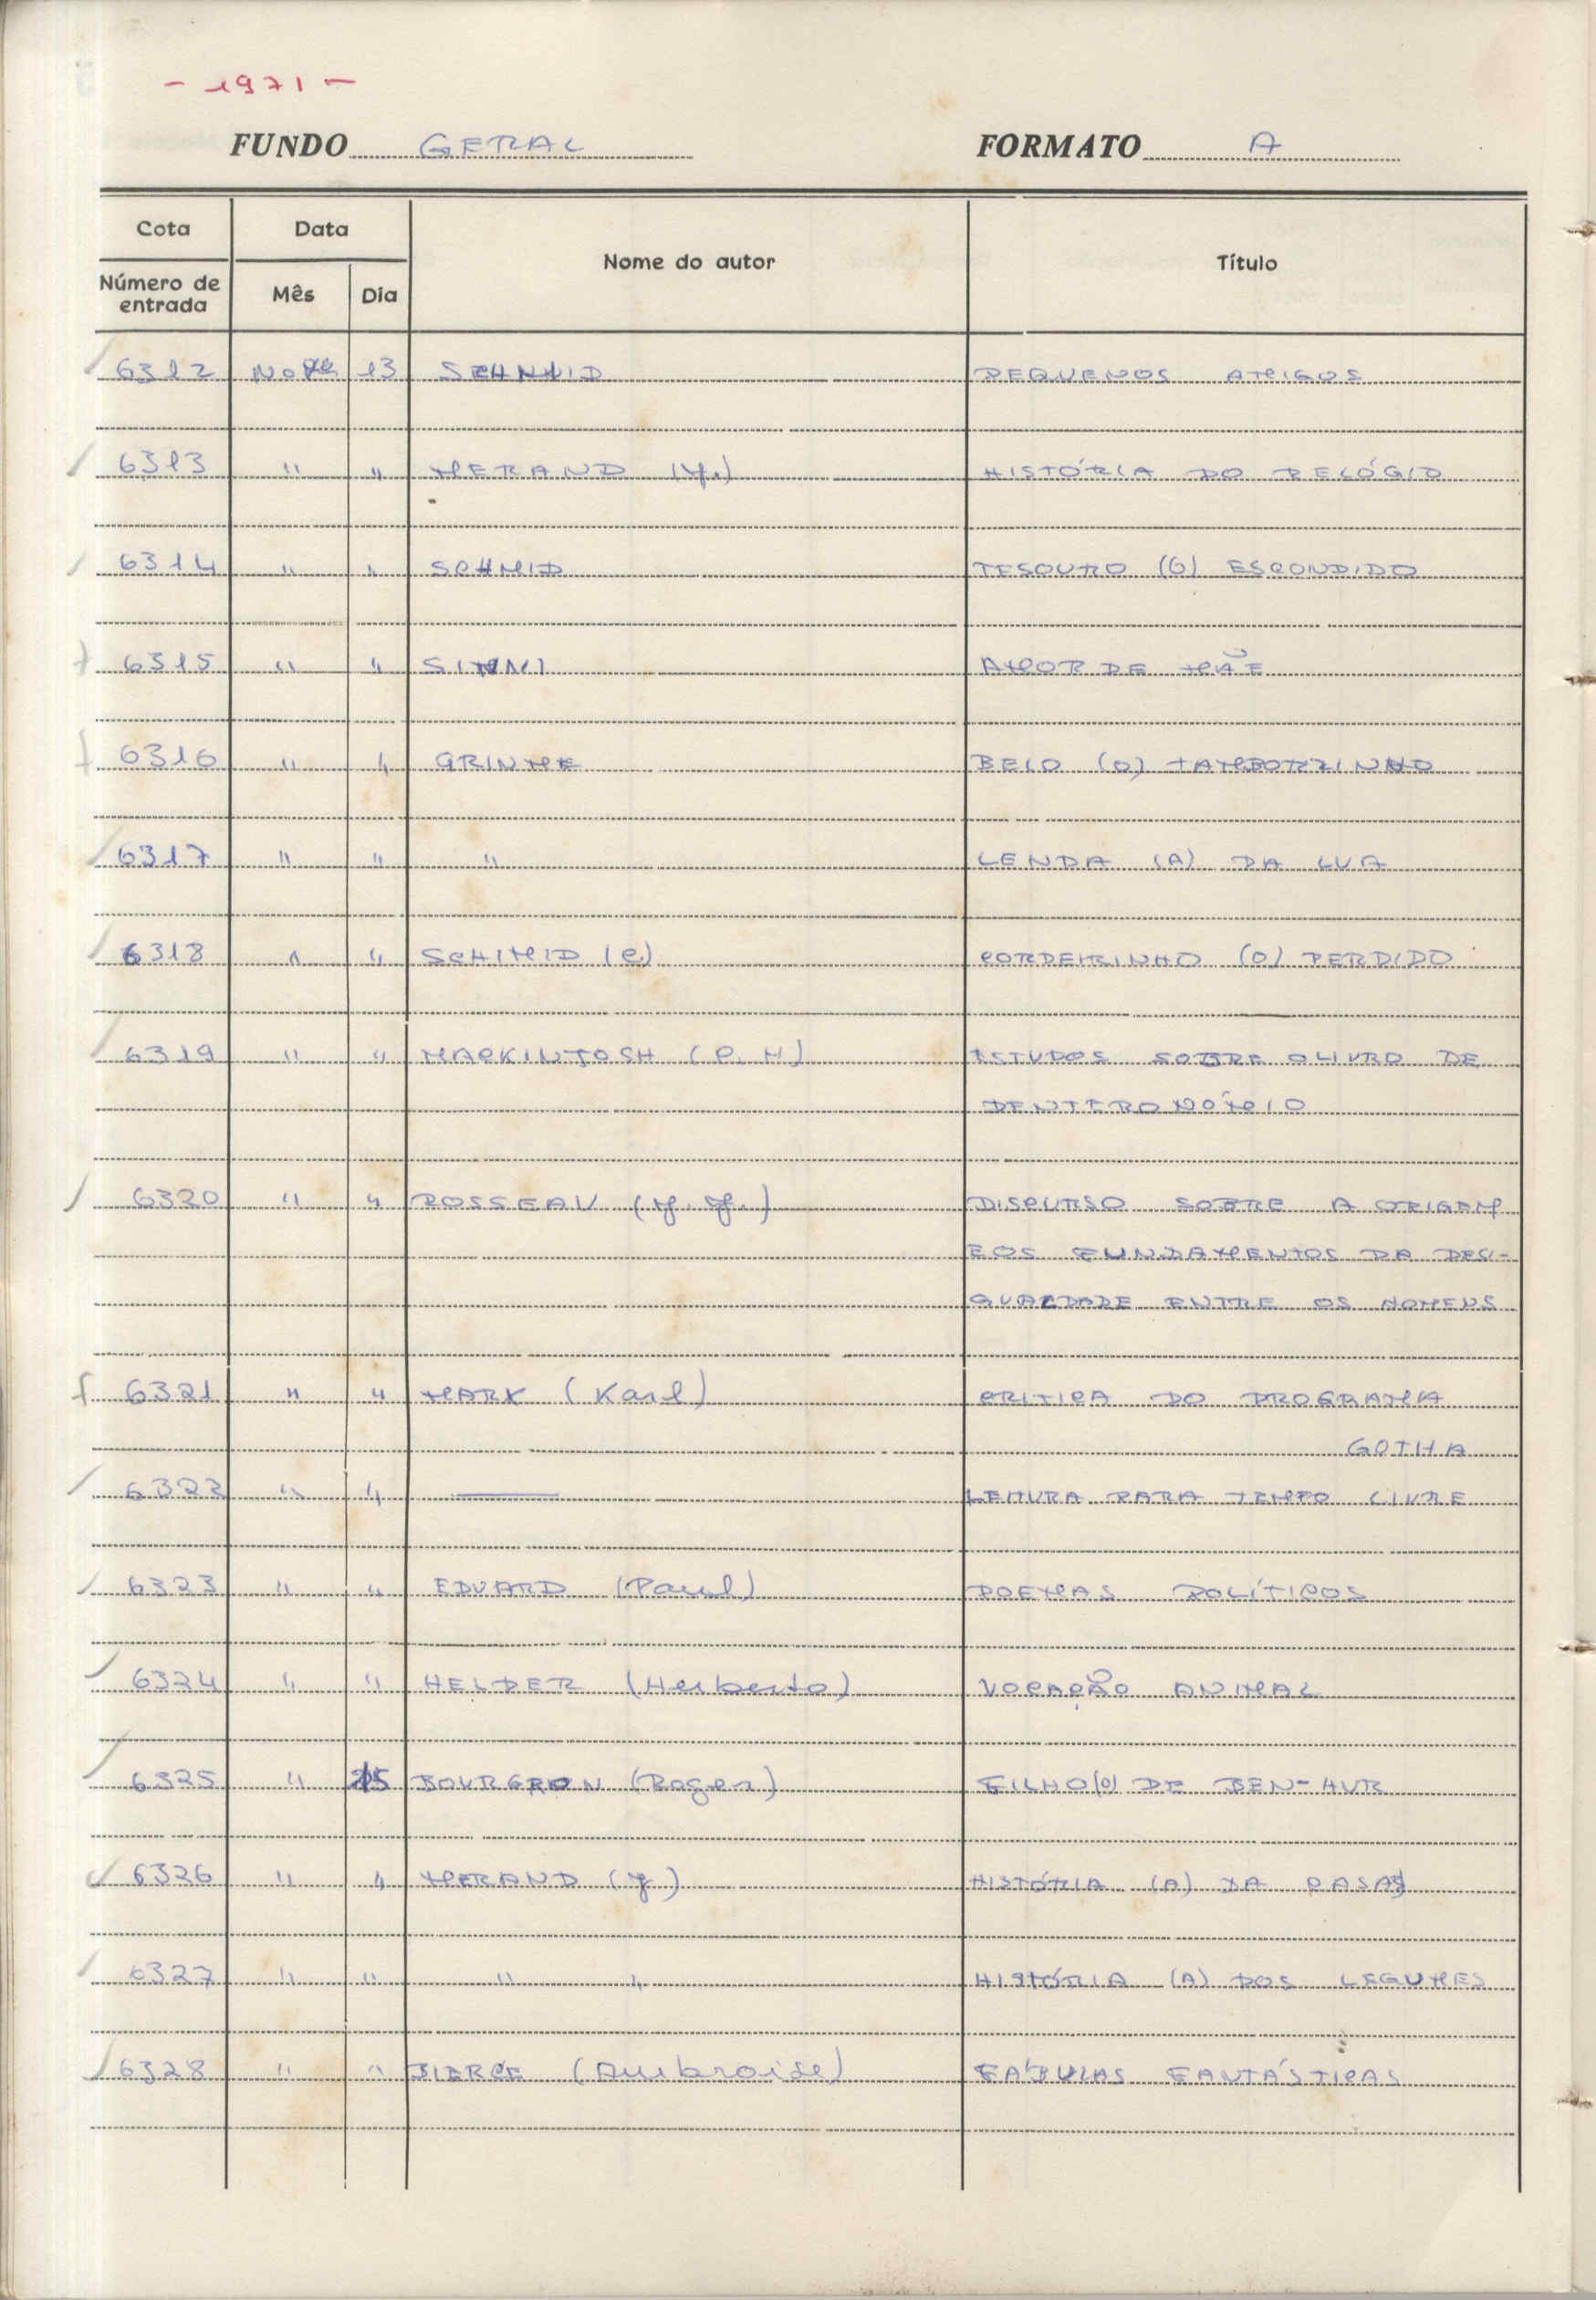 - 1971 -
FUNDO GERAL FORMATO A
Cota Data Nome do autor Título
Número de entrada Mês Dia
6312 13 SCHMID PEQUENOS AMIGOS
6313 " " MERAND (J.) HISTÓRIA DO RELÓGIO
6314 " " SCHMID TESOURO (O) ESCONDIDO
6315 " " AMOR DE MÃE
6316 " " GRIMME BELO (O) TAMBORZINHO
6317 " " " LENDA (A) DA LUA
6318 " " SCHIMID (C) CORDEIRINHO (O) PERDIDO
6319 " " MACKINTOSH (C. H) ESTUDOS SOBRE O LIVRO DE
DENTERONÓMIO
6320 " " ROSSEAU (J. J.) DISCURSO SOBRE A ORIGEM
E OS FUNDAMENTOS DA DESI-
GUALDADE ENTRE OS HOMENS
6321 " " MARX (Karl) CRITICA DO PROGRAMA
GOTHA
6322 " " — LEITURA PARA TEMPO LIVRE
6323 " " EDUARD (Paul) POEMAS POLÍTICOS
6324 " " HELDER (Herberto) VOCAÇÃO ANIMAL
6325 " 15 BOURGEON (Roger) FILHO (O) DE BEN-HUR
6326 " " MERAND (J) HISTÓRIA (A) DA CASA
6327 " " " " HISTÓRIA (A) DOS LEGUMES
6328 " " BIERCE (Ambroise) FÁBULAS FANTÁSTICAS